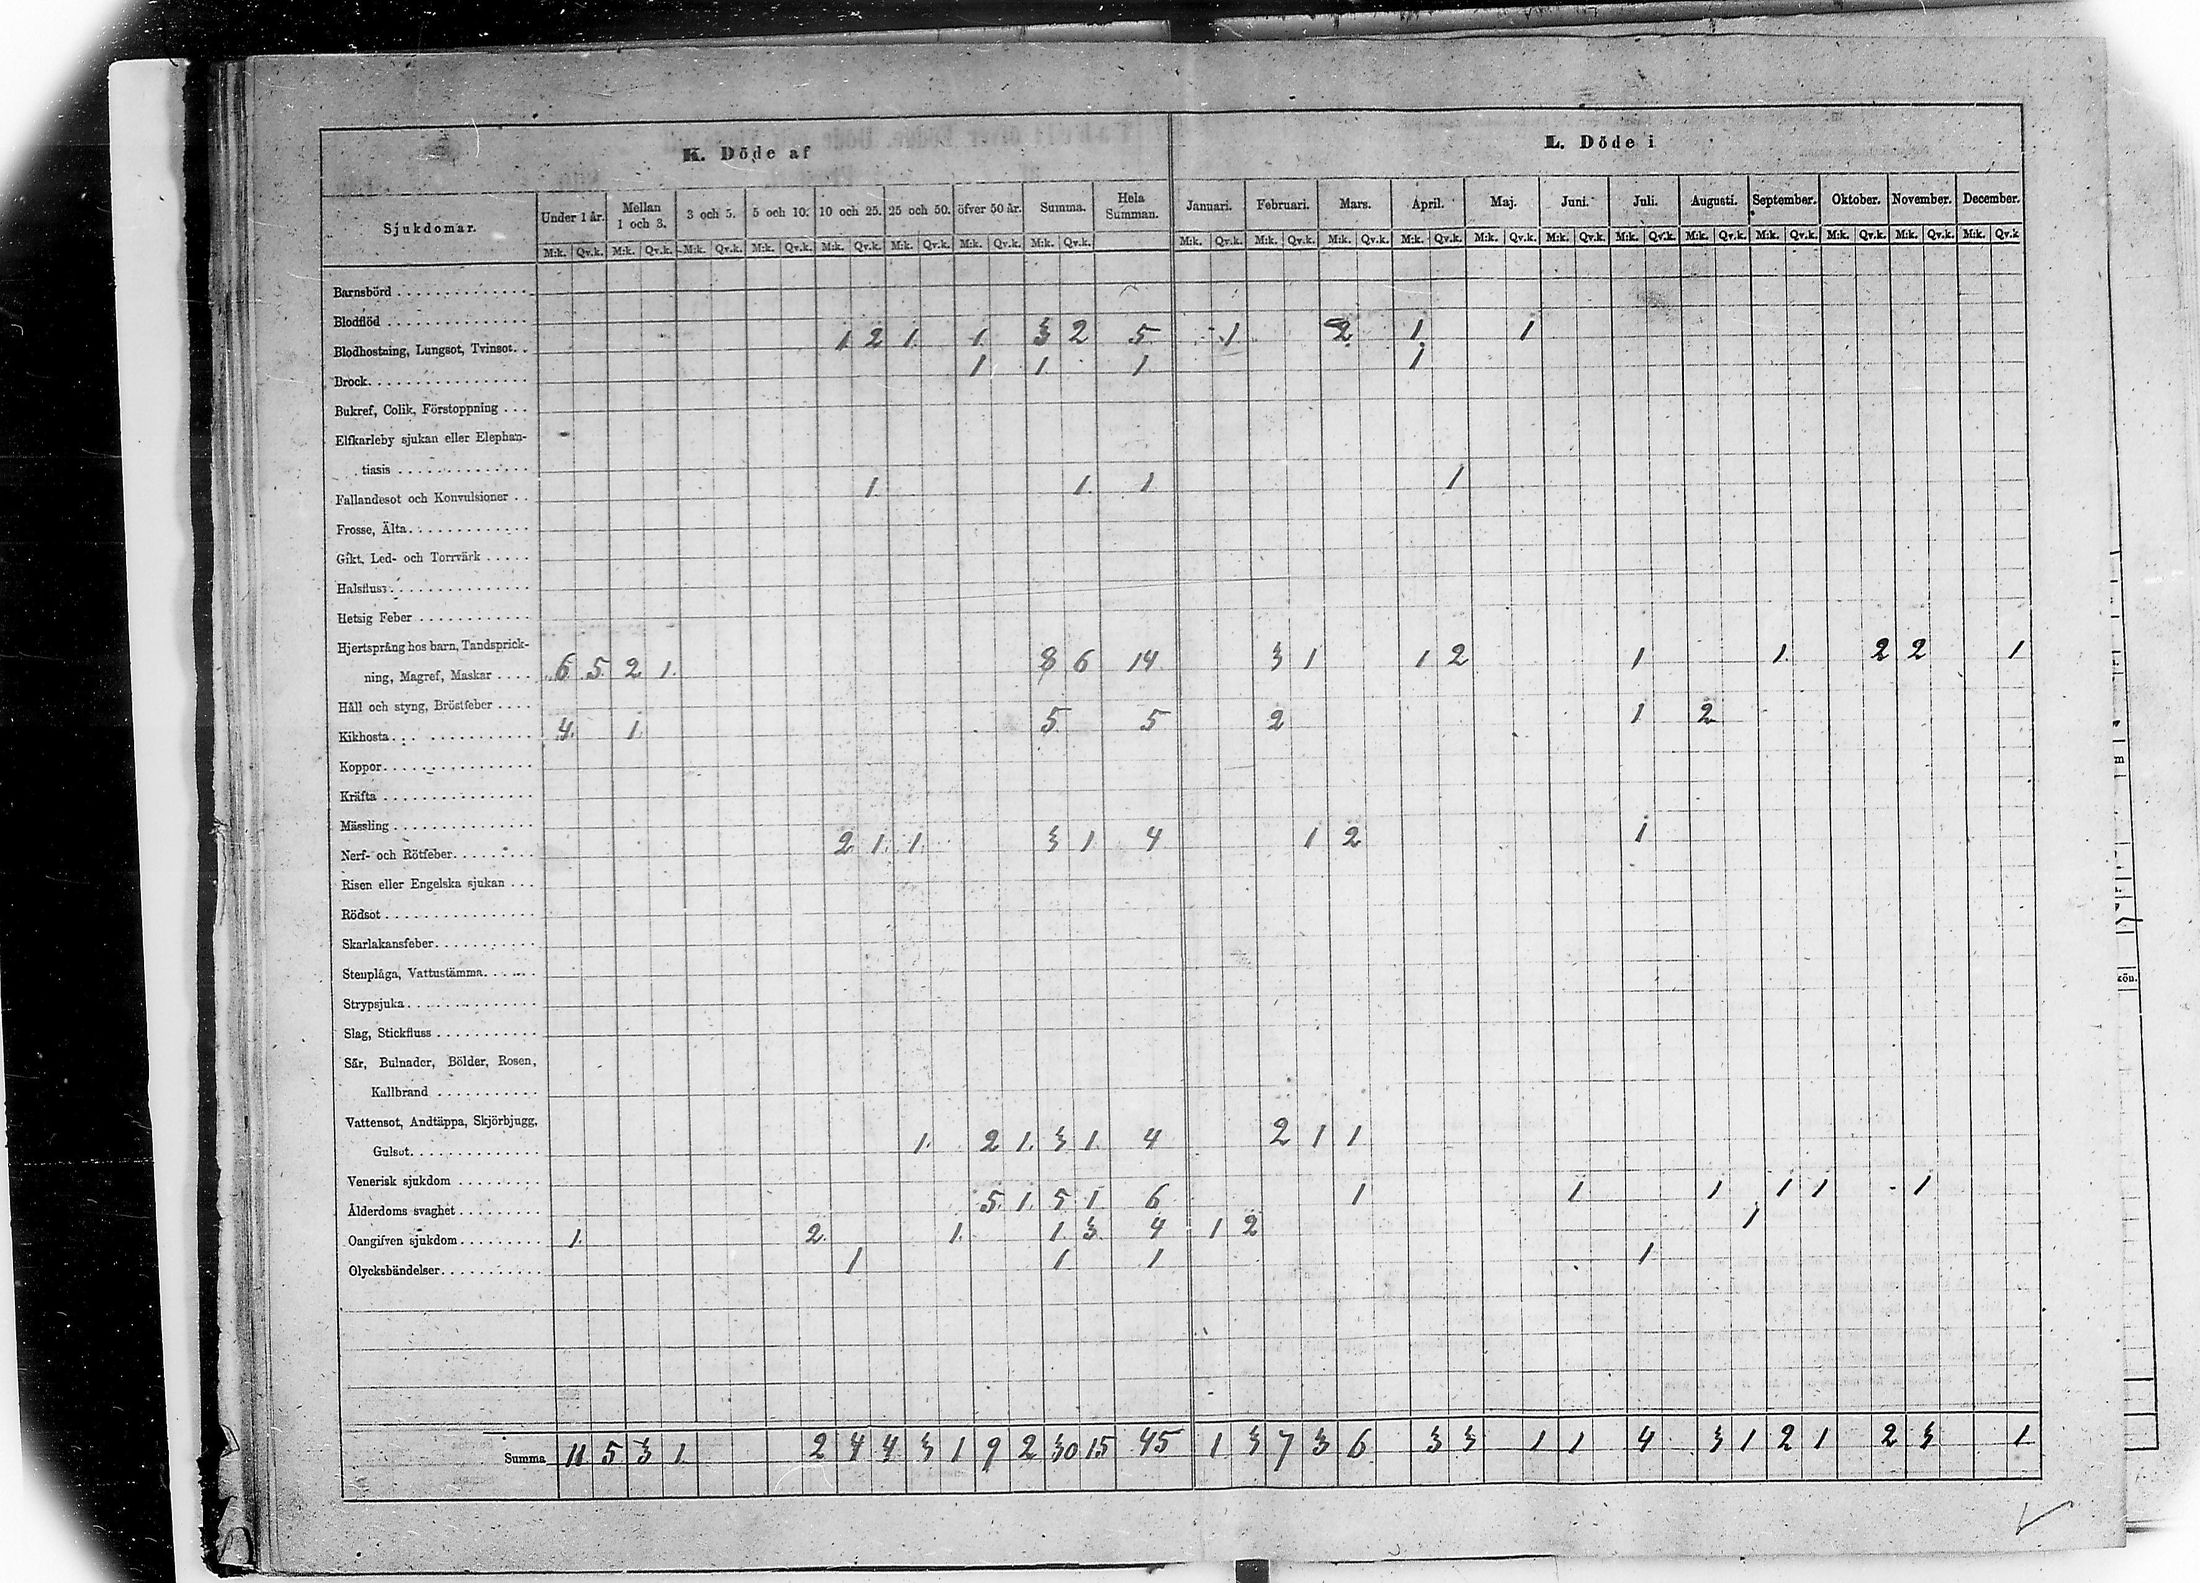 K. Döde af L. Döde i
Sjukdomar. Under 1 år. Mellan 1 och 3. 3 och 5. 5 och 10. 10 och 25. 25 och 50. öfver 50 år. Summa. Hela Summan. Januari. Februari. Mars. April. Maj. Juni. Juli. Augusti. September. Oktober. November. December.
M:k. Qv.k. M:k. Qv.k. M:k. Qv.k. M:k. Qv.k. M:k. Qv.k. M:k. Qv.k. M:k. Qv.k. M:k. Qv.k. M:k. Qv.k. M:k. Qv.k. M:k. Qv.k. M:k. Qv.k. M:k. Qv.k. M:k. Qv.k. M:k. Qv.k. M:k. Qv.k. M:k. Qv.k. M:k. Qv.k. M:k. Qv.k. M:k. Qv.k
Barnsbörd
Blodflöd
Blodhostning, Lungsot, Tvinsot. 1. 2 1. 1. 3 2 5 1 2 1 1
Brock 1 1 1 1
Bukref, Colik, Förstoppning
Elfkarleby sjukan eller Elephan-
tiasis
Fallandesot och Konvulsioner 1. 1. 1 1
Frosse, Älta
Gikt, Led- och Torrvärk
Halsfluss
Hetsig Feber
Hjertsprång hos barn, Tandsprick-
ning, Magref, Maskar 6 5. 2 1. 8 6 14 3 1 1 2 1 1. 2 2 1
Håll och styng, Bröstfeber
Kikhosta 4. 1. 5 5 2 1 2
Koppor
Kräfta
Mässling
Nerf- och Rötfeber 2 1. 1. 3 1 4 1 2 1
Risen eller Engelska sjukan
Rödsot
Skarlakansfeber
Stenplåga, Vattustämma
Strypsjuka
Slag, Stickfluss
Sår, Bulnader, Bölder, Rosen,
Kallbrand
Vattensot, Andtäppa, Skjörbjugg,
Gulsot 1. 2 1. 3 1. 4 2 1 1
Venerisk sjukdom
Ålderdoms svaghet 5. 1. 5 1 6 1 1 1 1 1 1
Oangifven sjukdom 1. 2. 1. 1. 3 4 1 2 1
Olycksbändelser 1 1 1 1
Summa 11 5 3 1 2 4 4 3 1 9 2 30 15 45 1 3 7 3 6 3 3 1 1 4 3 1 2 1 2 3 1